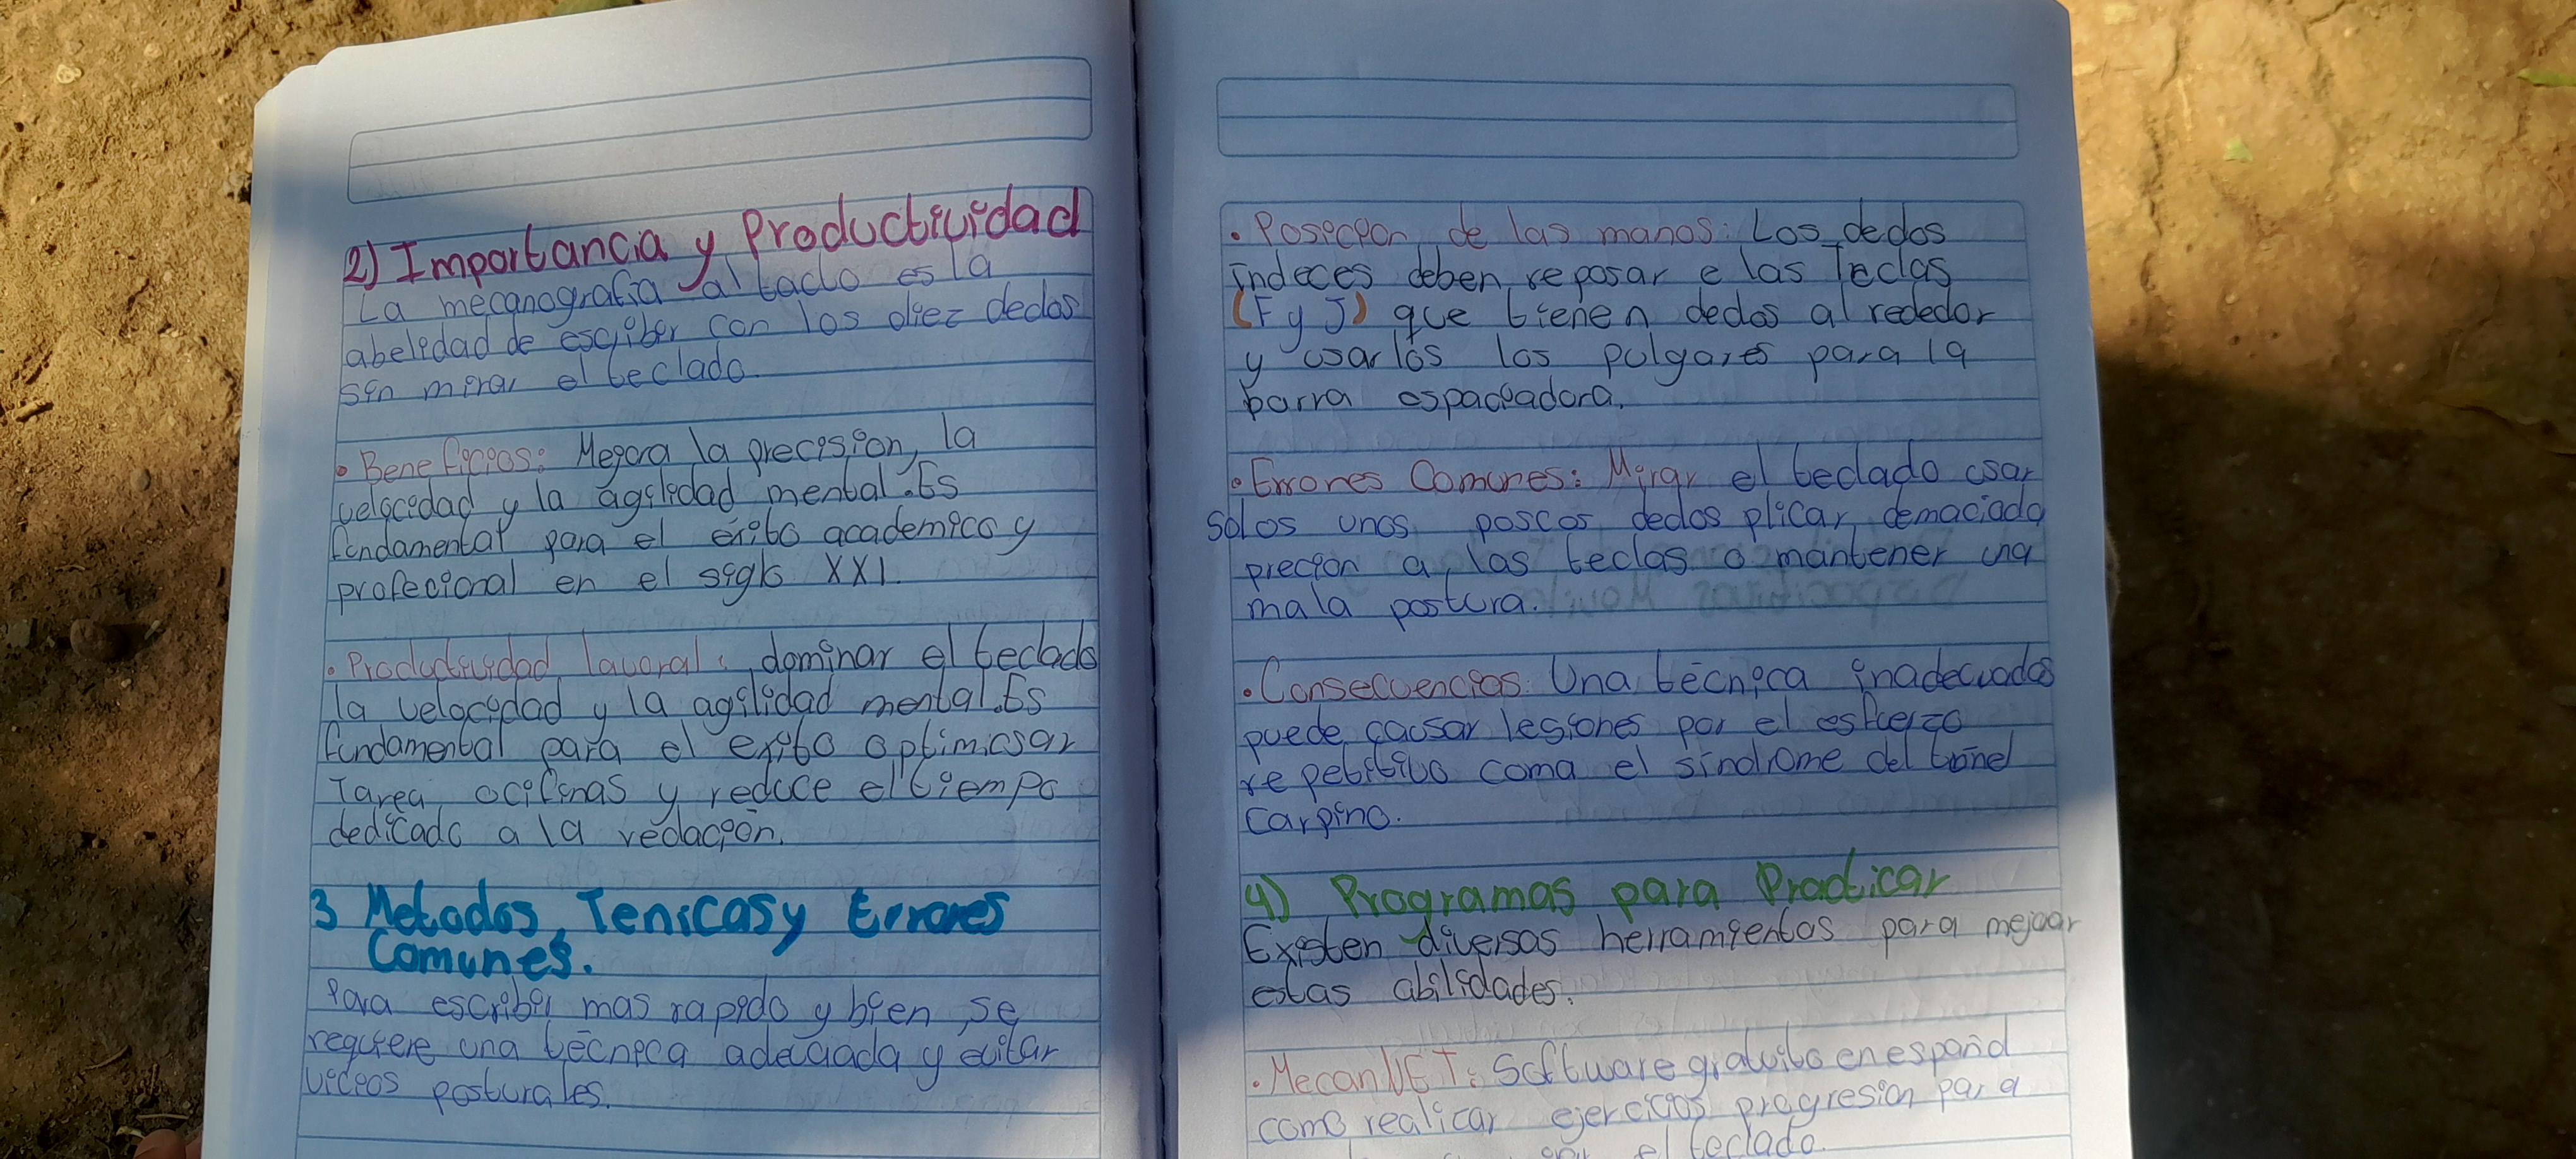 2) Importancia y Productividad
La mecanografia al tacto es la
abelidad de escriber con los diez dedos
sin mirar el teclado.
• Beneficios: Mejora la precision, la
velocidad y la agilidad mental. Es
fundamental para el exito academico y
profecional en el siglo XXI.
• Productividad lavoral: dominar el teclado
la velocidad y la agilidad mental. Es
fundamental para el exito optimicsar
Tarea ocifinas y reduce el tiempo
dedicado a la redación.
3 Metodos, Tenicas y Errores
Comunes.
Para escribir mas rapido y bien, se
requiere una técnica adecuada y evitar
viceos posturales.
• Posicion de las manos: Los dedos
indeces deben reposar e las Teclas
(F y J) que tienen dedos al rededor
y usar los los pulgares para la
barra espaciadora.
• Errores Comunes: Mirar el teclado usar
solos unos poscos dedos plicar demaciado
precion a las teclas o mantener una
mala postura.
• Consecuencias: Una técnica inadecuados
puede causar lesiones por el esfuerzo
repetitivo coma el sindrome del túnel
carpino.
4) Programas para Practicar
Existen diversas herramientos para mejoar
estas abilidades.
• MecanNET: Software gratuito en español
como realicar ejercicios progresion para
el teclado.